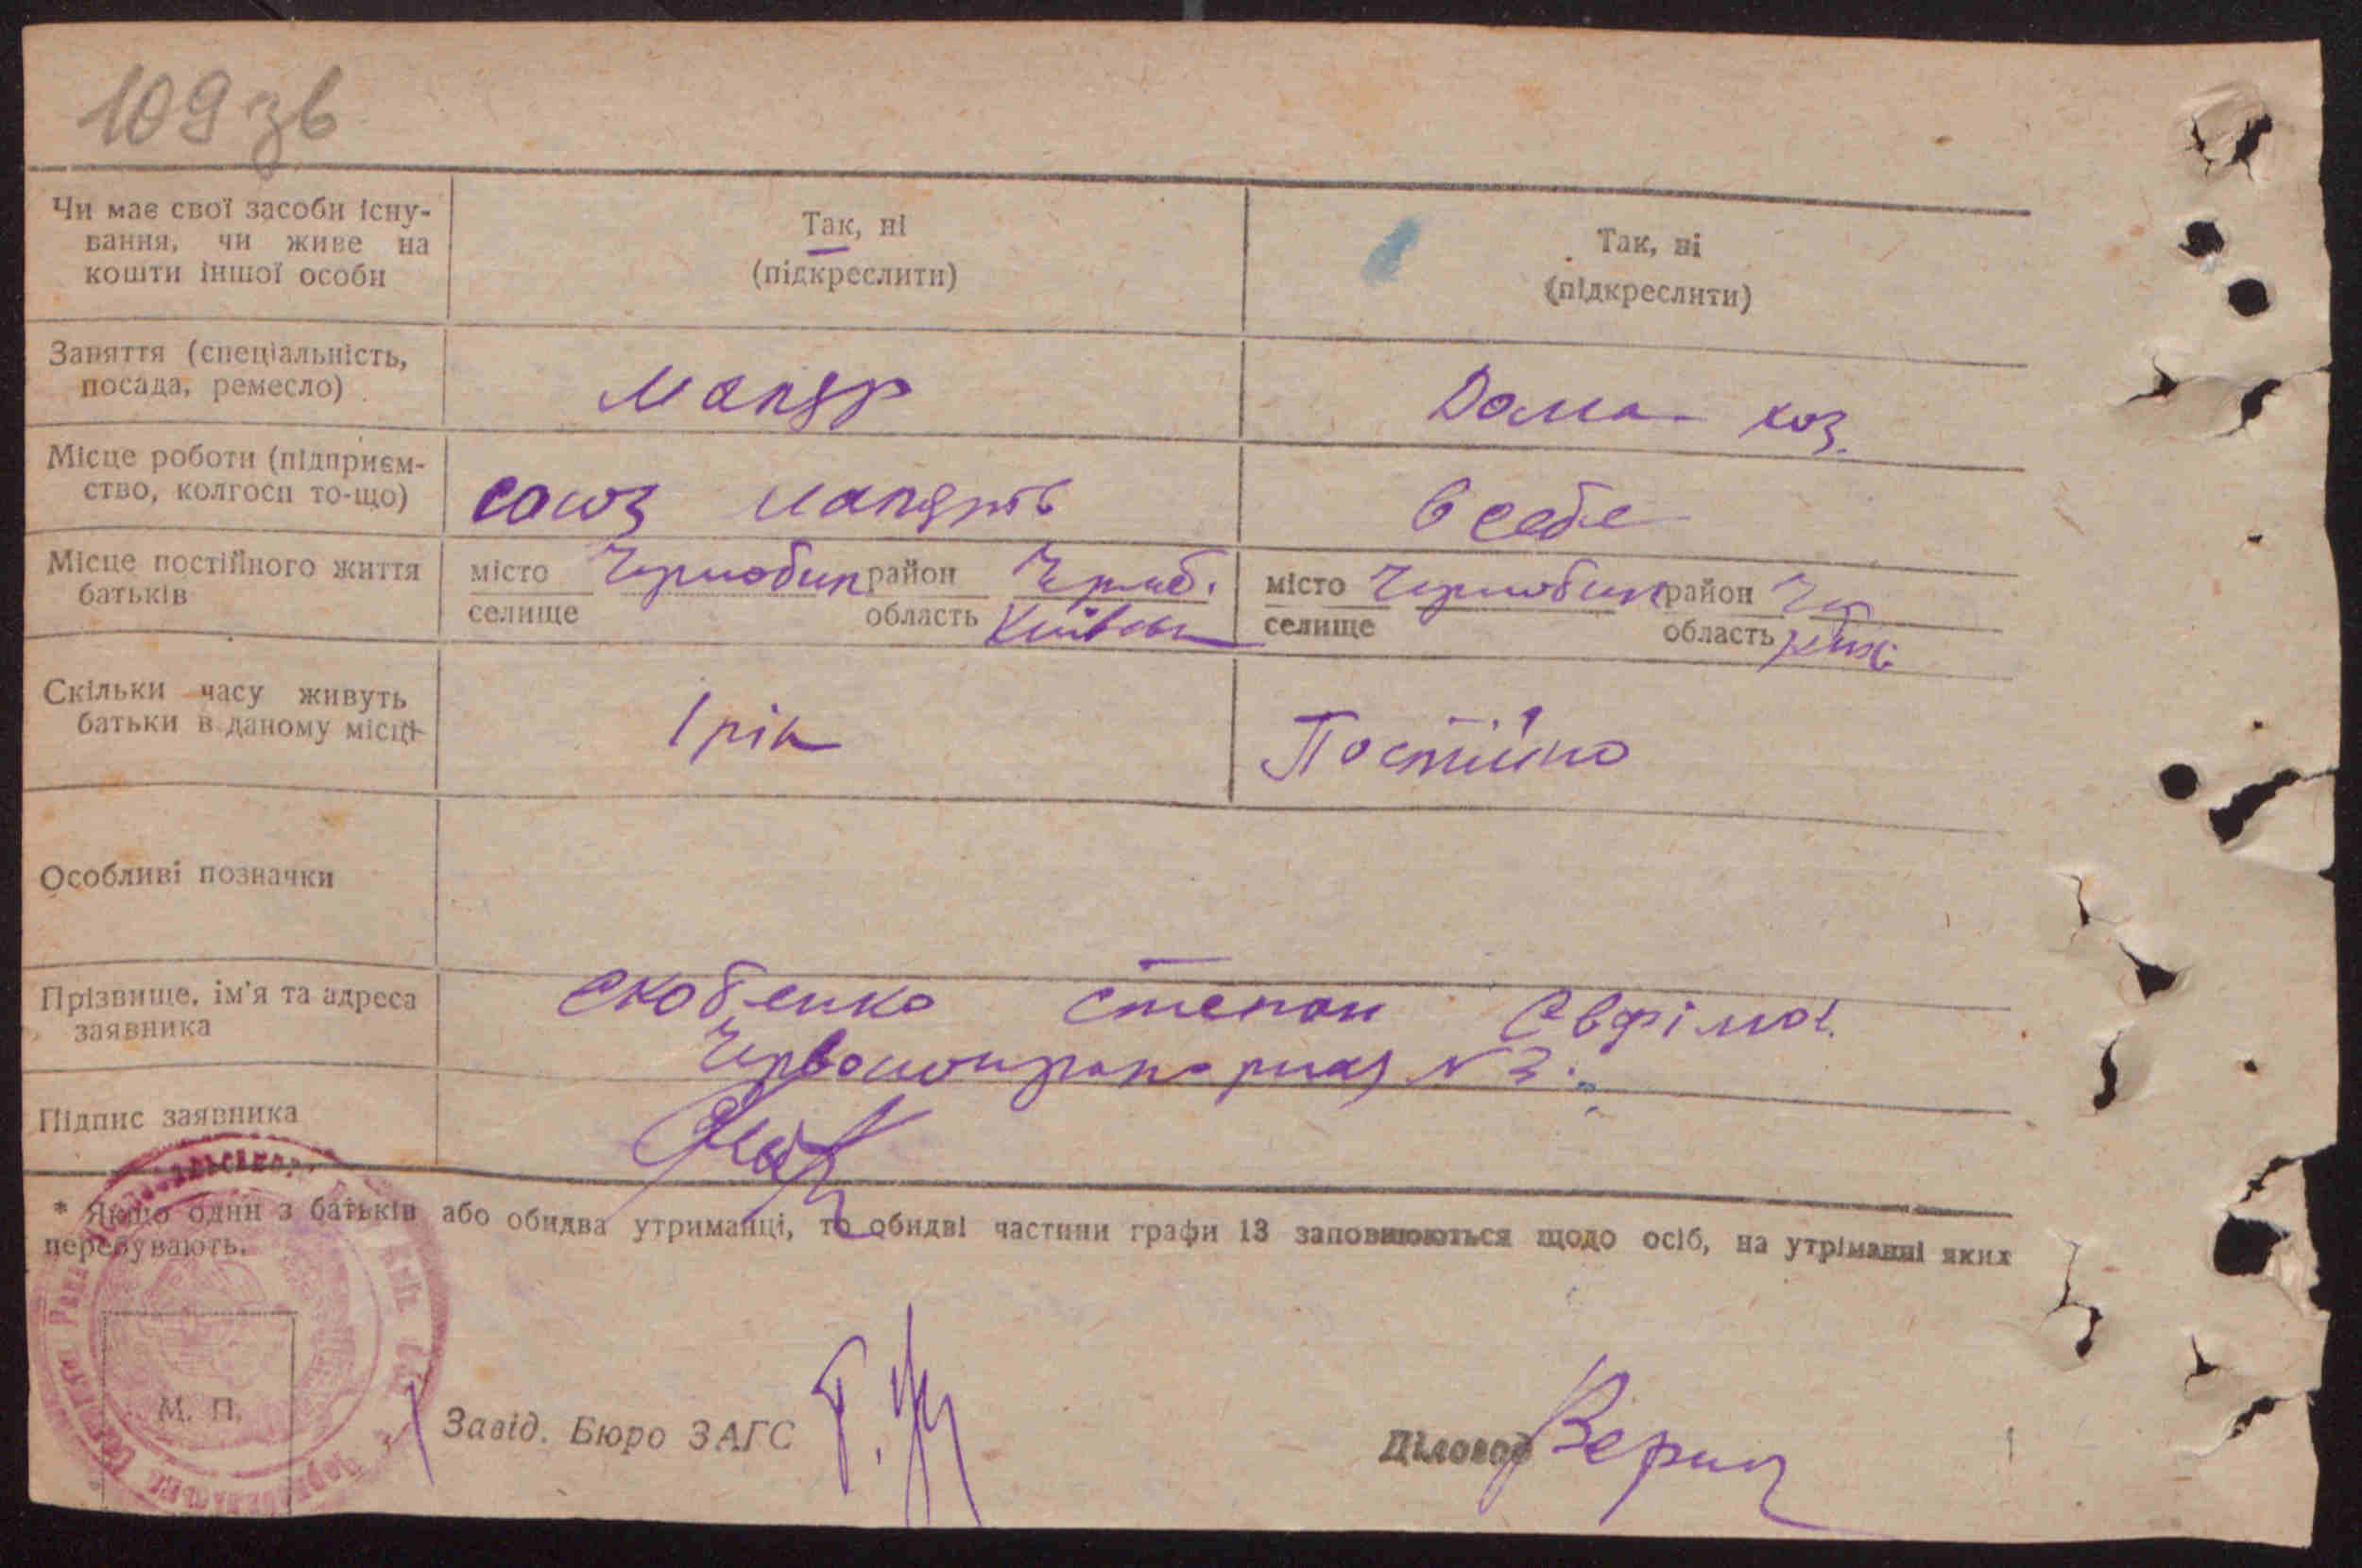 109 зв
Чи має свої засоби існу-
вання, чи живе на
кошти іншої особи
Так, ні
(підкреслити)
Так, ні
(підкреслити)
Заняття (спеціальність,
посада, ремесло)
Маляр
Дома хоз.
Місце роботи (підприєм-
ство, колгосп то-що)
союз малярів
в себе
Місце постійного життя
батьків
місто Чернобил район Черноб.
селище область Київськ
місто Чернобил район Чер
селище область Київ
Скільки часу живуть
батьки в даному місці
1 рік
Постійно
Особливі позначки
Прізвище, ім'я та адреса
заявника
Скобенко Степан Євфімов.
Червонопрапорная № 3.
Підпис заявника
* Якщо один з батьків або обидва утриманці, то обидві частини графи 13 заповнюються щодо осіб, на утріманні яких
перебувають.
М. П.
Завід. Бюро ЗАГС
Діловод